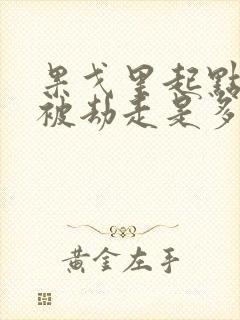 果戈里起點
被劫走是多
黃金左手